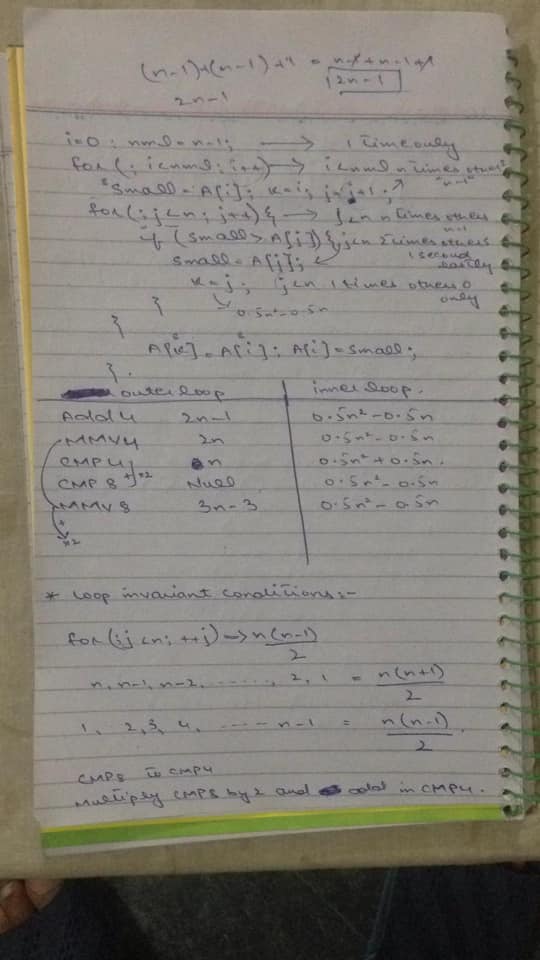 (n-1)+(n-1)+1 = n-1+n-1+1
2n-1 2n-1
i=0; nml=n-1; → 1 time only
for(; i<nml; i++) → i<nml n times others n-1
small = A[i]; k=i; j=i+1;
for(; j<n; j++){ → j<n n times others n-1
if (small > A[j]){ j<n 2 times others 1 second lastly
small = A[j];
k=j; j<n 1 times others 0 only
} 0.5n²-0.5n
}
A[k] = A[i]; A[i] = small;
}.
outer loop inner loop.
Add4 2n-1 0.5n²-0.5n
MMV4 2n 0.5n²-0.5n
CMP4 n 0.5n²+0.5n.
CMP8 +×2 Null 0.5n²-0.5n
MMV8 3n-3 0.5n²-0.5n
+
×2
* Loop invariant conditions:-
for(; j<n; ++j) → n(n-1)/2
n, n-1, n-2, ......, 2, 1 = n(n+1)/2
1, 2, 3, 4, ..... n-1 = n(n-1)/2.
CMP8 to CMP4
Multiply CMP8 by 2 and add in CMP4.